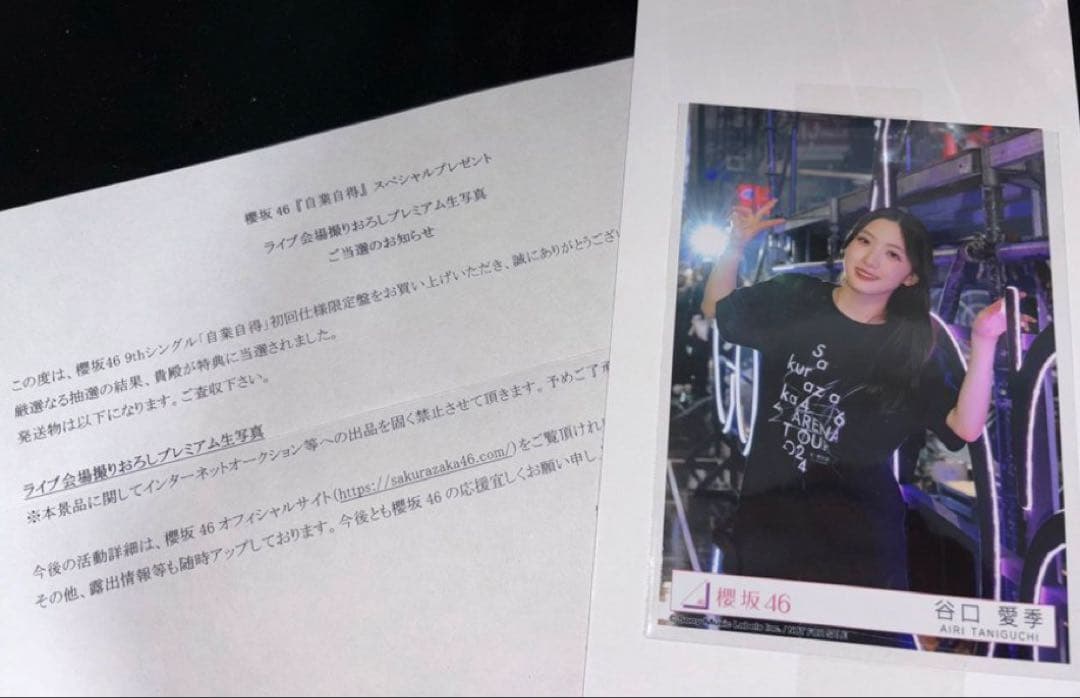 櫻坂46『自業自得』スペシャルプレゼント
ライブ会場撮りおろしプレミアム生写真
ご当選のお知らせ
この度は、櫻坂46 9thシングル「自業自得」初回仕様限定盤をお買い上げいただき、誠にありがとうござい
厳選なる抽選の結果、貴殿が特典に当選されました。
発送物は以下になります。ご査収下さい。
ライブ会場撮りおろしプレミアム生写真
※本景品に関してインターネットオークション等への出品を固く禁止させて頂きます。予めご了承
今後の活動詳細は、櫻坂46オフィシャルサイト(https://sakurazaka46.com/)をご覧頂けれ
その他、露出情報等も随時アップしております。今後とも櫻坂46の応援宜しくお願い申し
Sa
kuraza
ka46
ARENA
TOUR
2024
櫻坂46
谷口 愛季
AIRI TANIGUCHI
© Sony Music Labels Inc. / NOT FOR SALE